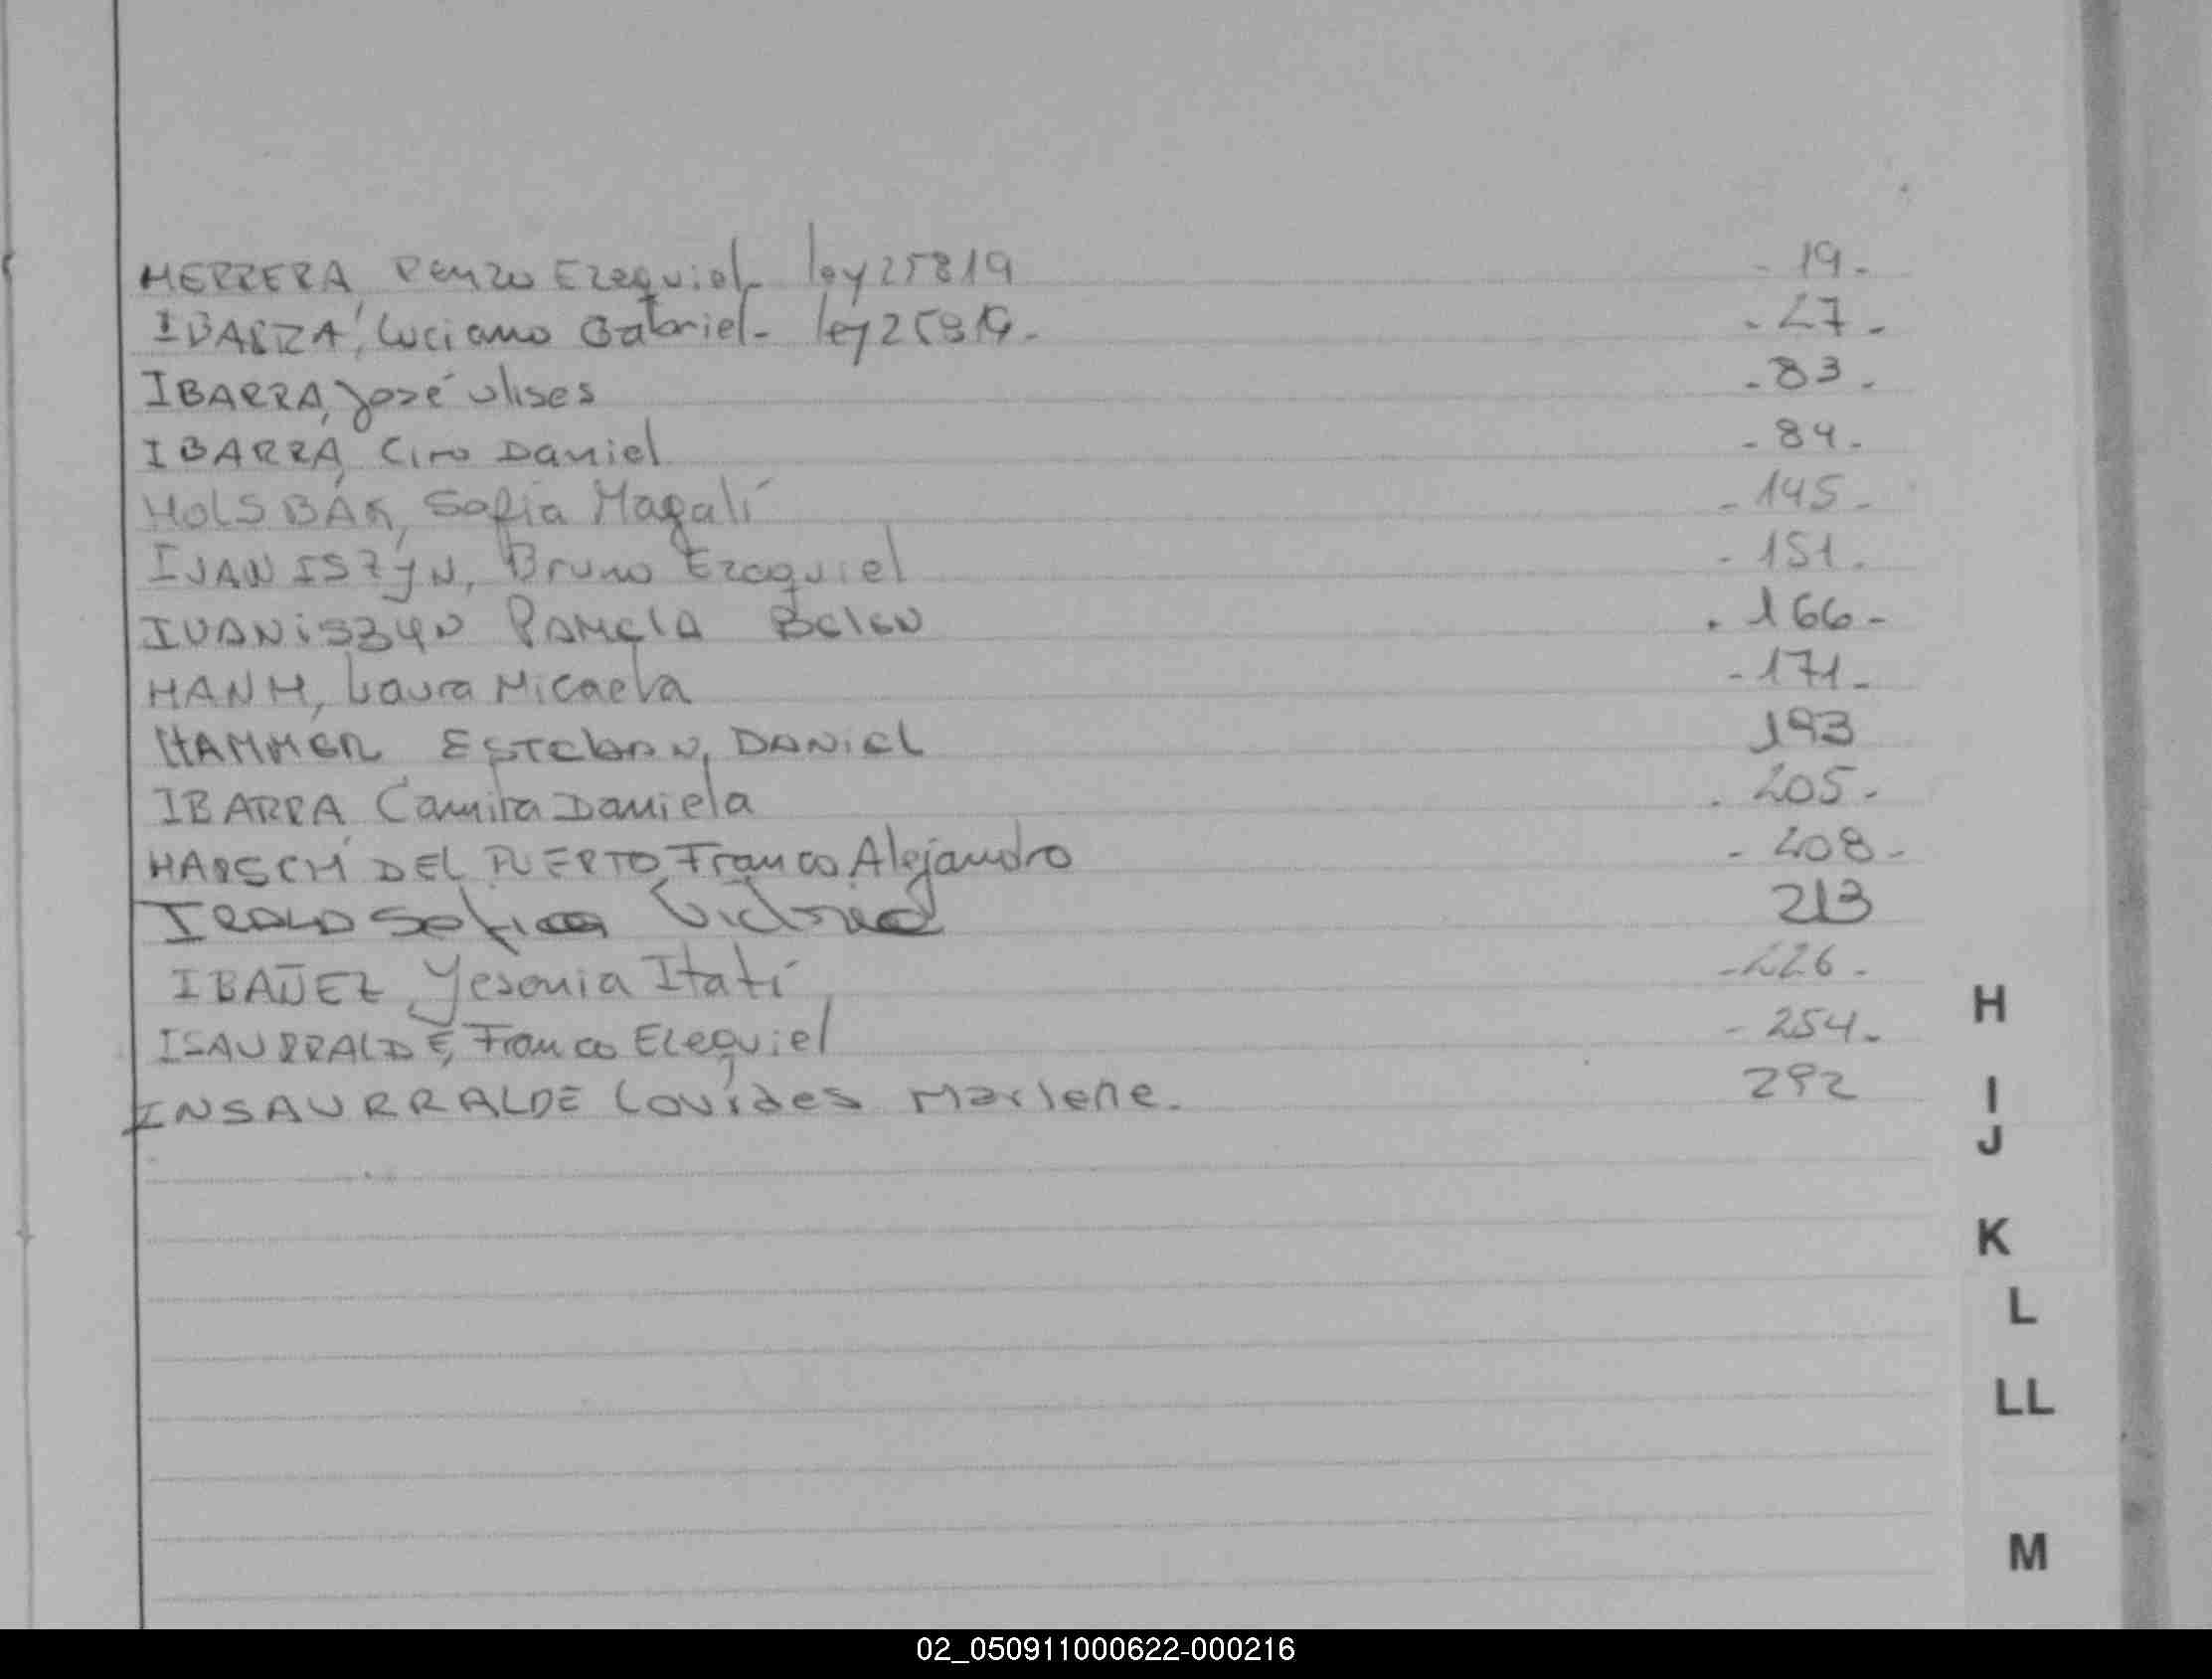 HERRERA, Renzo Ezequiel - ley 25819 - 19 -
IBARRA, Luciano Gabriel - ley 25819 - - 27 -
IBARRA, José Ulises - 83 -
IBARRA, Ciro Daniel - 84 -
HOLSBAK, Sofia Magalí - 145 -
IVANISZYN, Bruno Ezequiel - 151 -
IVANISZYN PAMELA BELEN . 166 -
HANH, Laura Micaela - 171 -
HAMMER ESTEBAN, DANIEL 193
IBARRA, Camila Daniela . 205 -
HARSCH DEL PUERTO, Franco Alejandro - 208 -
IRALA Sofia 213
IBAÑEZ, Yesenia Itatí - 226 -
H
ISAURRALDE, Franco Ezequiel - 254 -
INSAURRALDE Lourdes Marlene. 292
I
J
K
L
LL
M
02_050911000622-000216